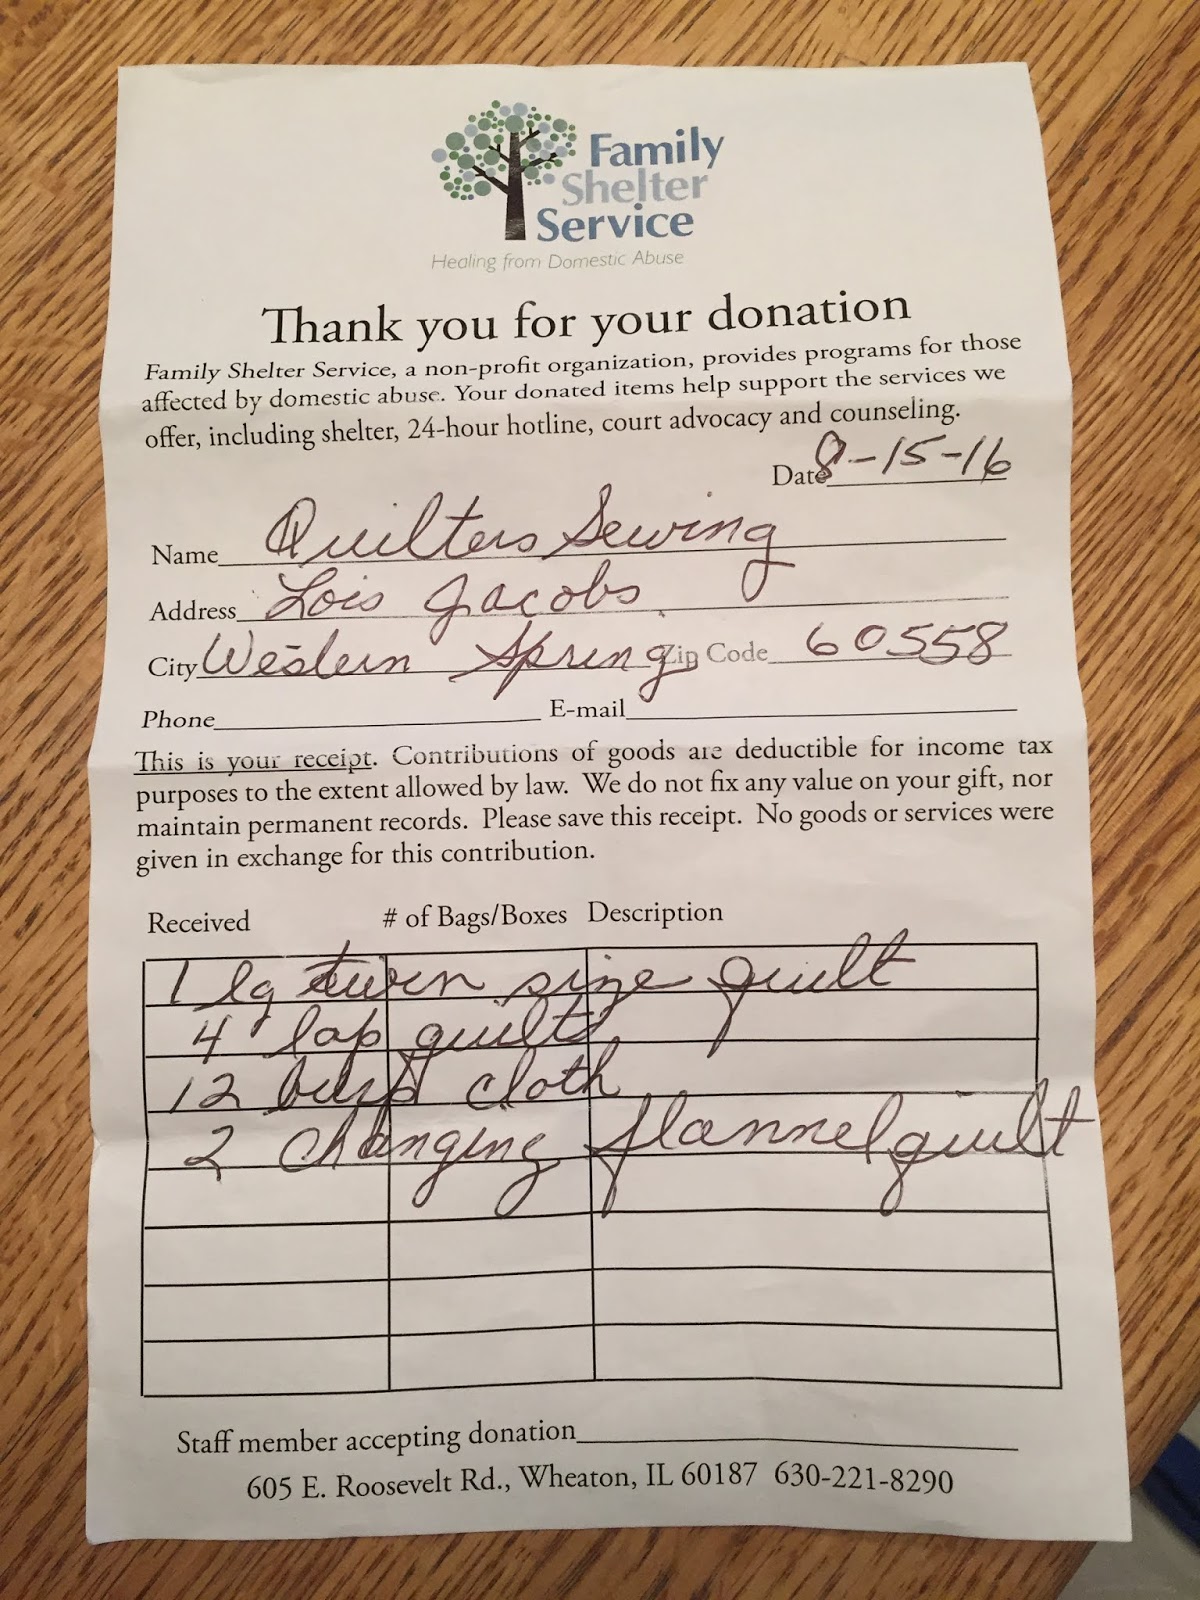 Family
Shelter
Service
Healing from Domestic Abuse
Thank you for your donation
Family Shelter Service, a non-profit organization, provides programs for those
affected by domestic abuse. Your donated items help support the services we
offer, including shelter, 24-hour hotline, court advocacy and counseling.
Date 8-15-16
Name Quilters Sewing
Address Lois Jacobs
City Western Spring Zip Code 60558
Phone E-mail
This is your receipt. Contributions of goods are deductible for income tax
purposes to the extent allowed by law. We do not fix any value on your gift, nor
maintain permanent records. Please save this receipt. No goods or services were
given in exchange for this contribution.
Received # of Bags/Boxes Description
1 lg twin size quilt
4 lap quilts
12 burp cloth
2 changing flannel quilt
Staff member accepting donation
605 E. Roosevelt Rd., Wheaton, IL 60187 630-221-8290